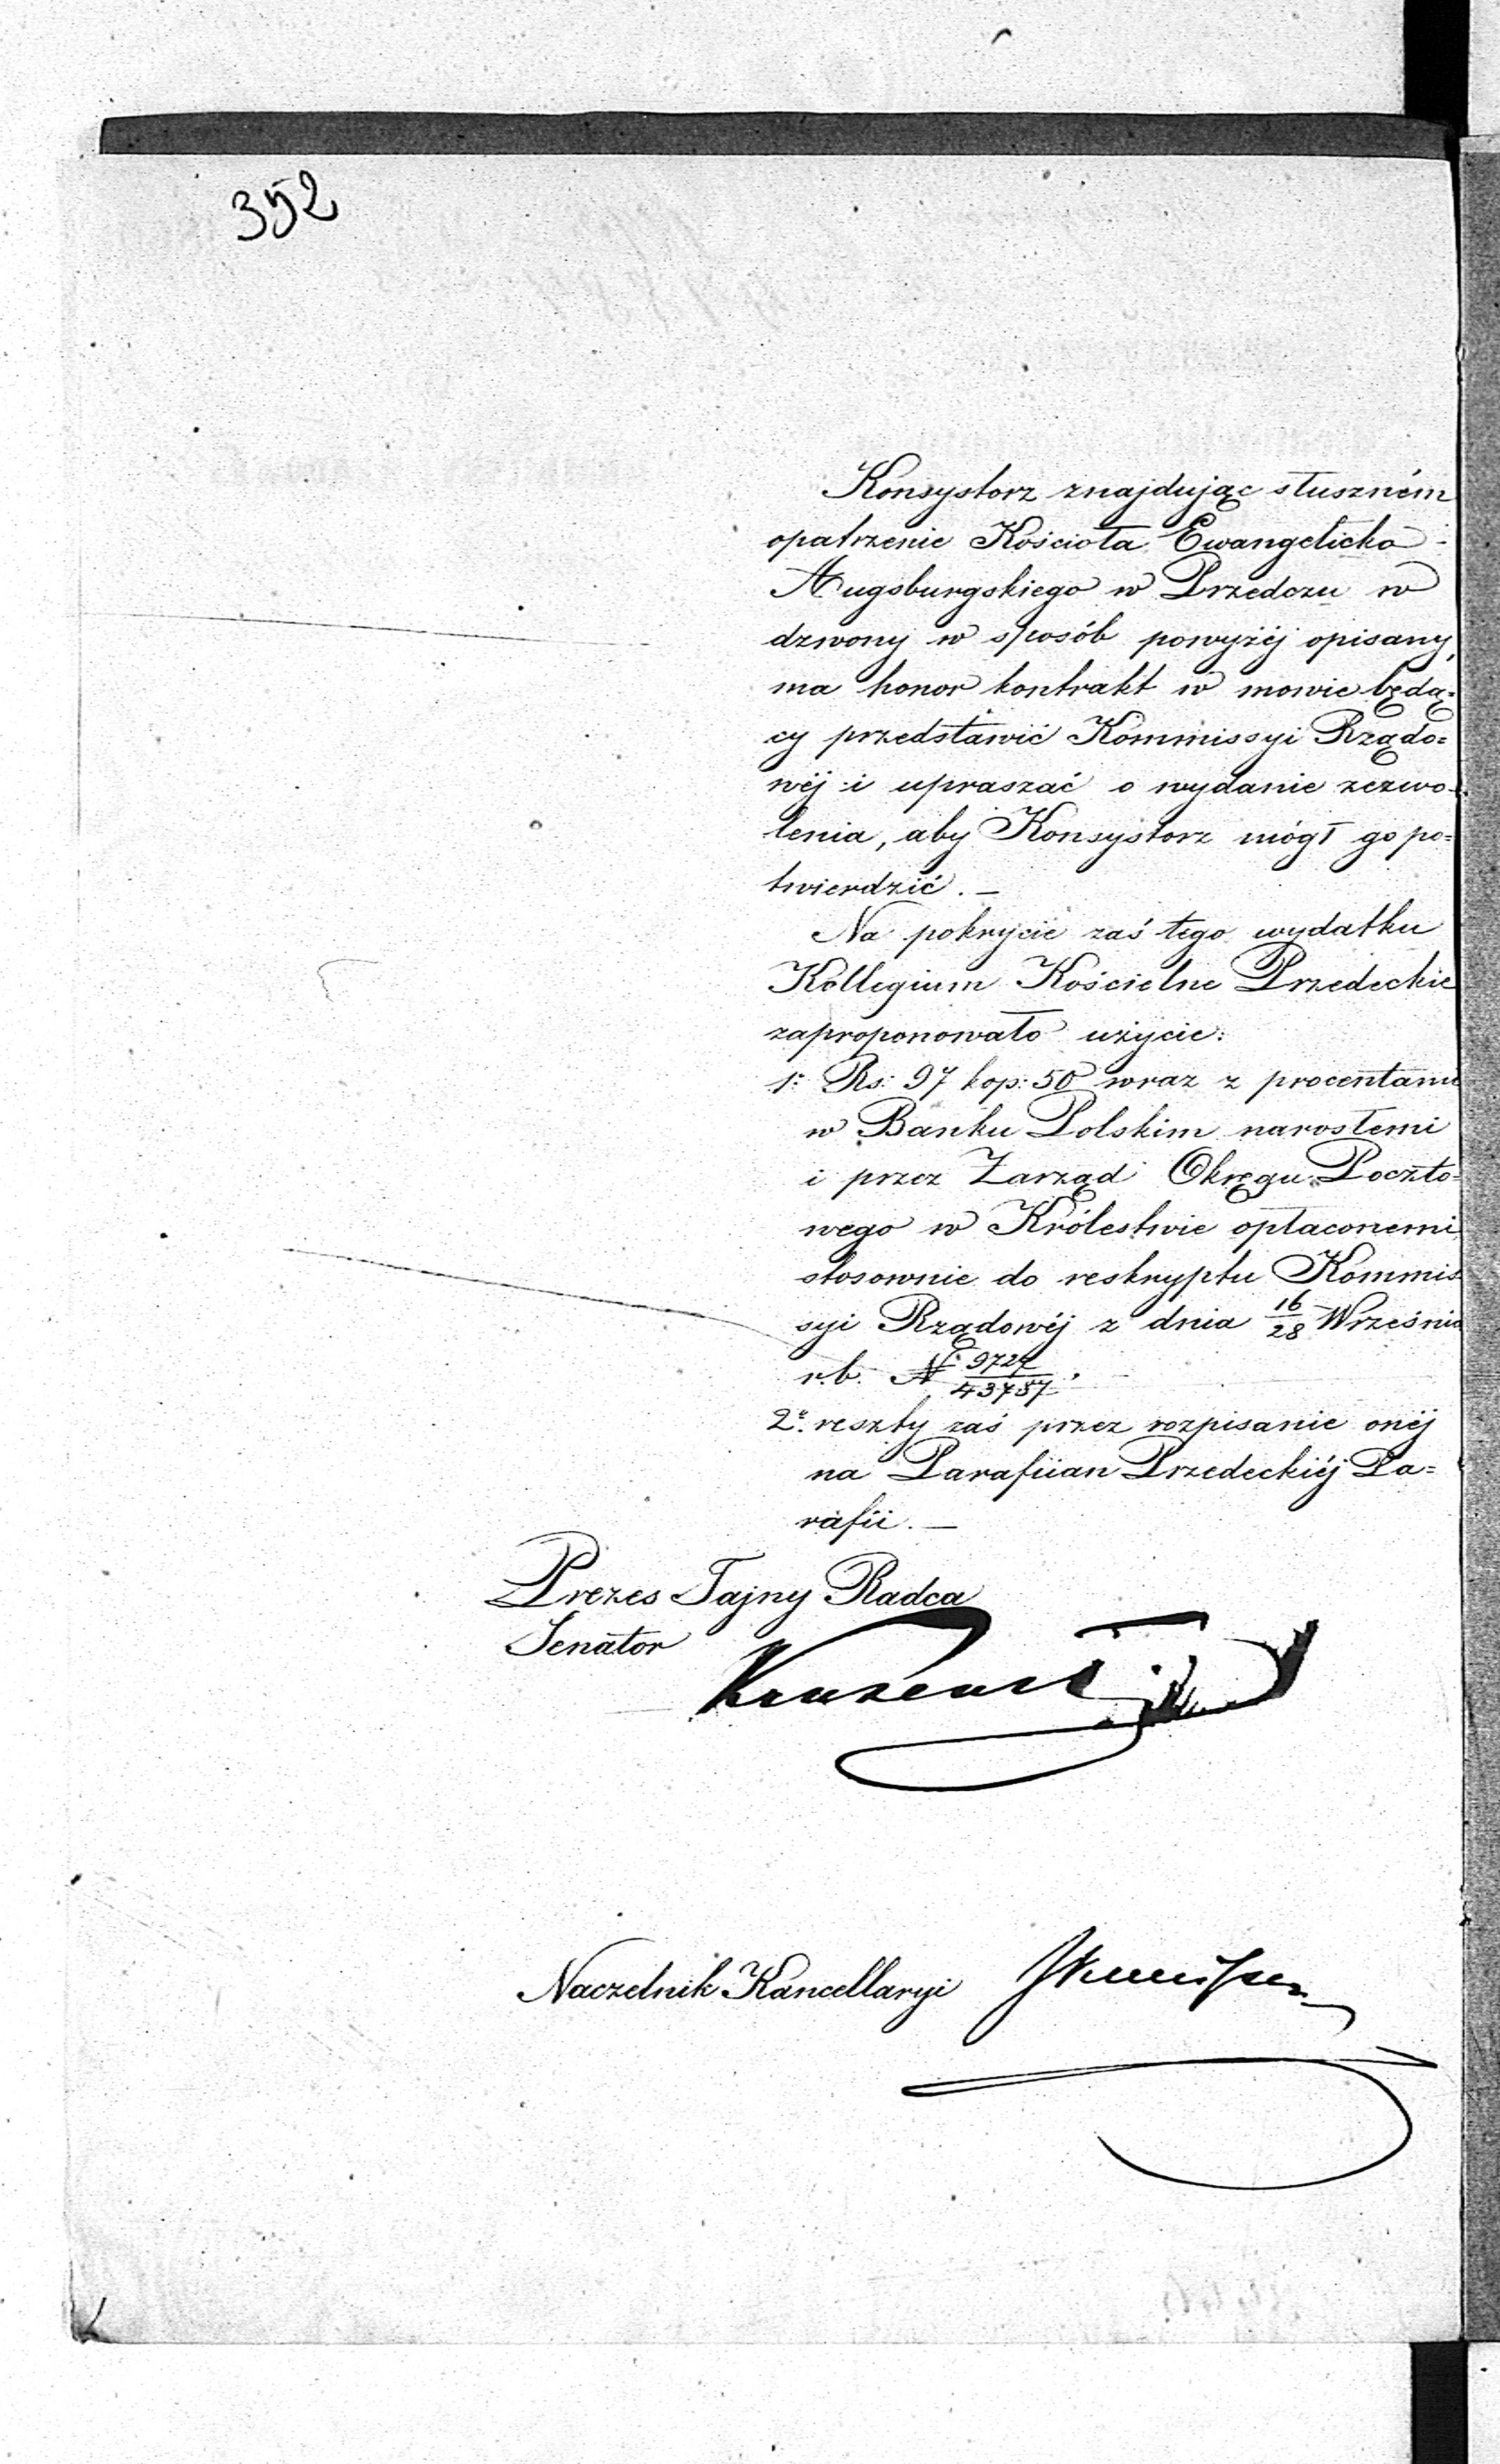 352
Konsystorz znajdując słuszném
opatrzenie Kościoła Ewangelicko-
Augsburgskiego w Przedczu w
dzwony w sposób powyżéj opisany,
ma honor kontrakt w mowie będą=
cy przedstawić Kommissyi Rządo=
wéj i upraszać o wydanie zezwo-
lenia, aby Konsystorz mógł go po=
twierdzić. —
Na pokrycie zaś tego wydatku
Kollegium Kościelne Przedeckie
zaproponowało użycie:
1º Rs: 97 kop: 50 wraz z procentami
w Banku Polskim narosłemi
i przez Zarząd Okręgu Poczto=
wego w Królestwie opłaconemi
stosownie do reskryptu Kommis
syi Rządowéj z dnia 16/28 Września
r.b. Nº 9727/43757,
2º reszty zaś przez rozpisanie onéj
na Parafiian Przedeckiéj Pa=
rafii. —
Prezes Tajny Radca
Senator
Naczelnik Kancellaryi